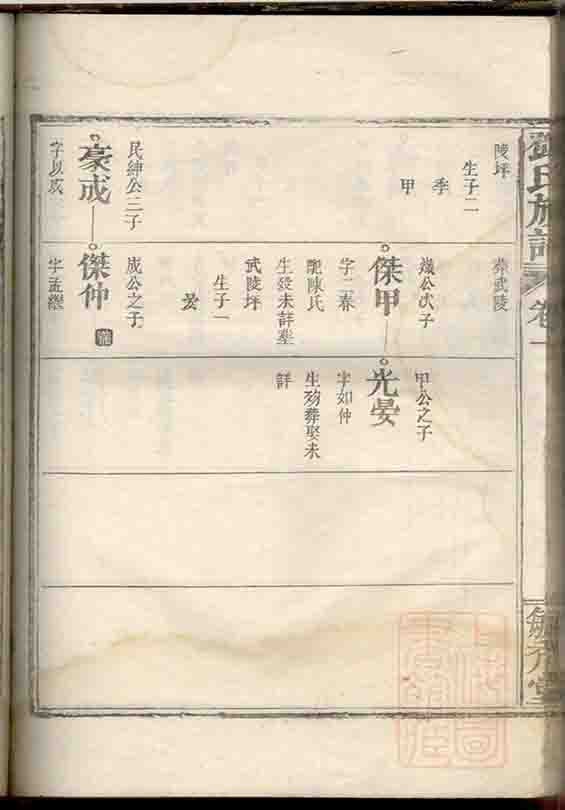 陵坪
生子二
季
甲
民紳公三子
豪成
字以成
葬武陵
公次子
傑甲
字二春
配陳氏
生歿未詳塟
武陵坪
生子一
晏
成公之子
傑仲
字孟
甲公之子
光晏
字如仲
生歿葬娶未
詳
氏族譜
卷一
堂